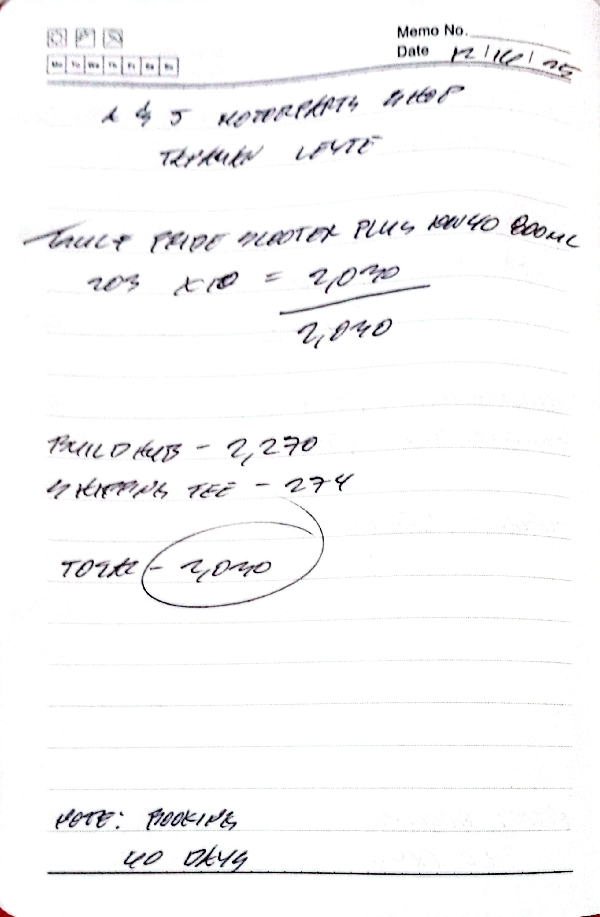 Memo No.
Date 12/16/25
Mo Tu We Th Fr Sa Su
J MOTORPARTS SHOP
LEYTE
PRIDE SCOOTER PLUS 10W40 800ML
203 X10 = 2,030
2,030
BUILDHUB - 2,270
SHIPPING FEE - 274
TOTAL - 2,030
NOTE: BOOKING
DAYS